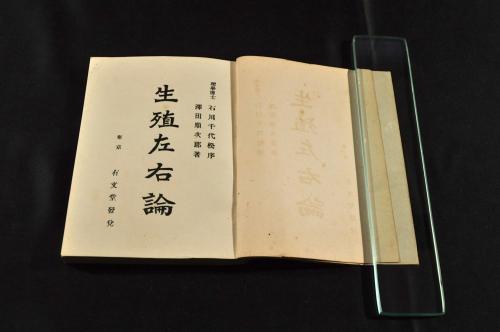 理學博士 石川千代松序
澤田順次郎著
生殖左右論
東京 有文堂發兌